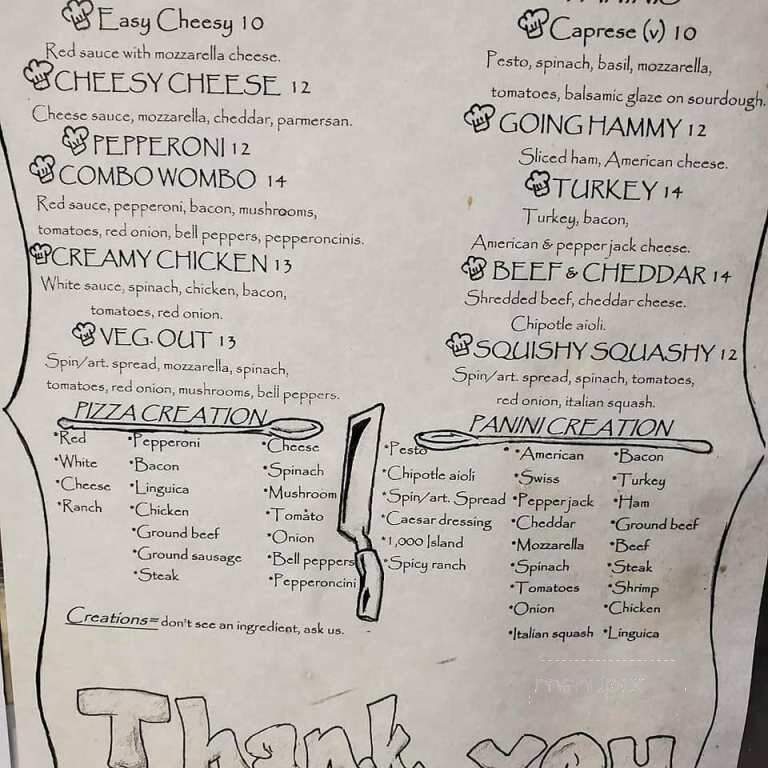 Easy Cheesy 10
Red sauce with mozzarella cheese.
CHEESY CHEESE 12
Cheese sauce, mozzarella, cheddar, parmersan.
PEPPERONI 12
COMBO WOMBO 14
Red sauce, pepperoni, bacon, mushrooms,
tomatoes, red onion, bell peppers, pepperoncinis.
CREAMY CHICKEN 13
White sauce, spinach, chicken, bacon,
tomatoes, red onion.
VEG. OUT 13
Spin/art. spread, mozzarella, spinach,
tomatoes, red onion, mushrooms, bell peppers.
Caprese (v) 10
Pesto, spinach, basil, mozzarella,
tomatoes, balsamic glaze on sourdough.
GOING HAMMY 12
Sliced ham, American cheese.
TURKEY 14
Turkey, bacon,
American & pepper jack cheese.
BEEF & CHEDDAR 14
Shredded beef, cheddar cheese.
Chipotle aioli.
SQUISHY SQUASHY 12
Spin/art. spread, spinach, tomatoes,
red onion, italian squash.
PIZZA CREATION
•Red
•White
•Cheese
•Ranch
•Pepperoni
•Bacon
•Linguica
•Chicken
•Ground beef
•Ground sausage
•Steak
•Cheese
•Spinach
•Mushroom
•Tomato
•Onion
•Bell peppers
•Pepperoncini
PANINI CREATION
•Pesto
•Chipotle aioli
•Spin/art. Spread
•Caesar dressing
•1,000 Island
•Spicy ranch
•American
•Swiss
•Pepper jack
•Cheddar
•Mozzarella
•Spinach
•Tomatoes
•Onion
•Italian squash
•Bacon
•Turkey
•Ham
•Ground beef
•Beef
•Steak
•Shrimp
•Chicken
•Linguica
Creations= don't see an ingredient, ask us.
Thank you